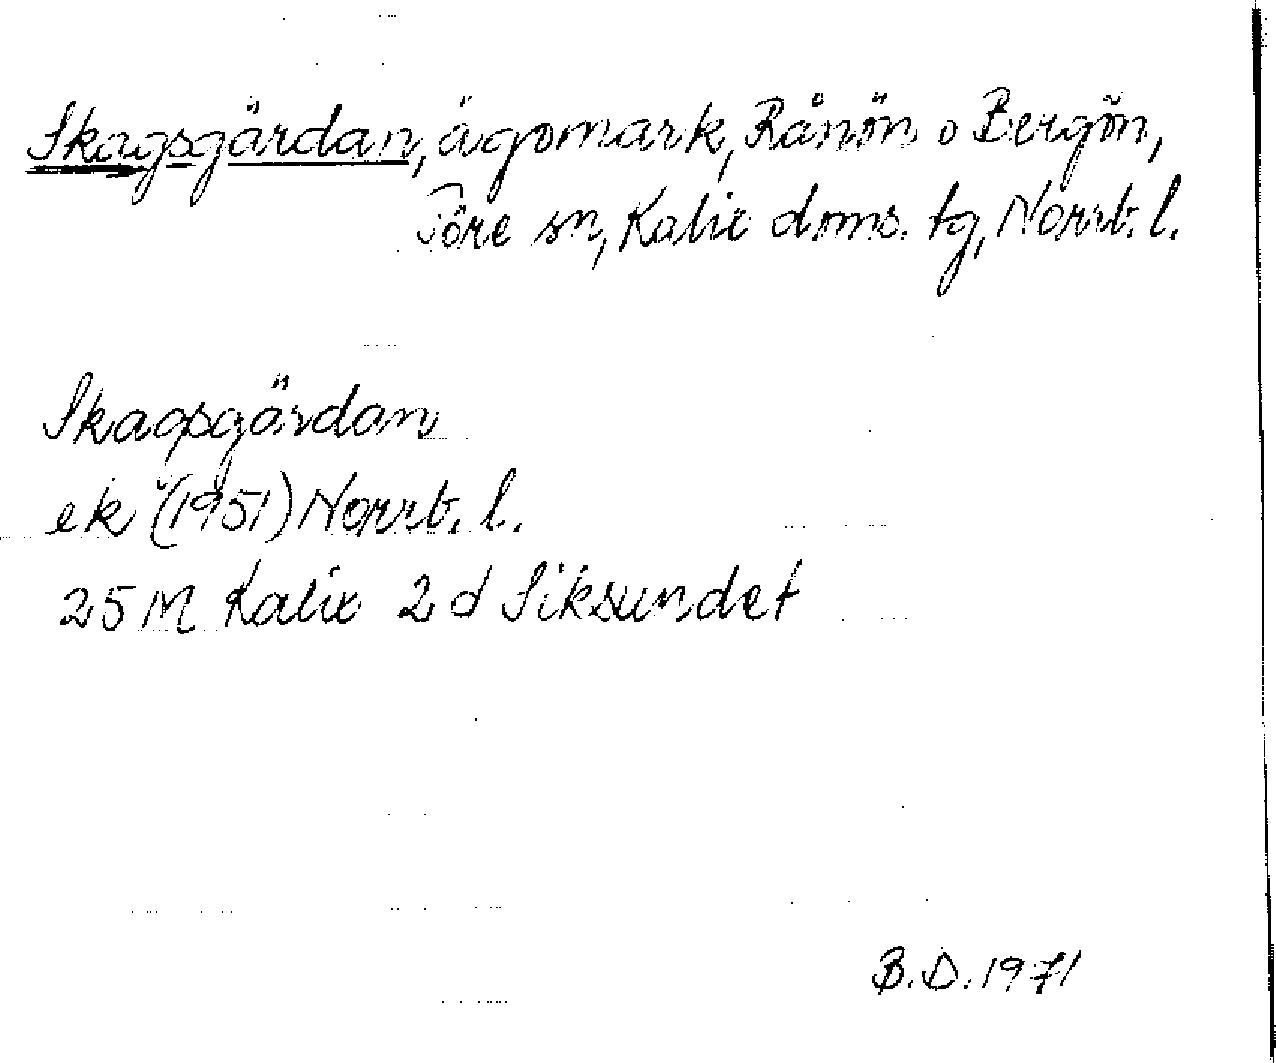 Skagsgärdan, ägomark, Rånön o Bergön,
Töre sn, Kalix doms. tg, Norrb. l.
Skagsgärdan
ek (1951) Norrb. l.
25 M Kalix 2 d Siksundet
B.D. 1971